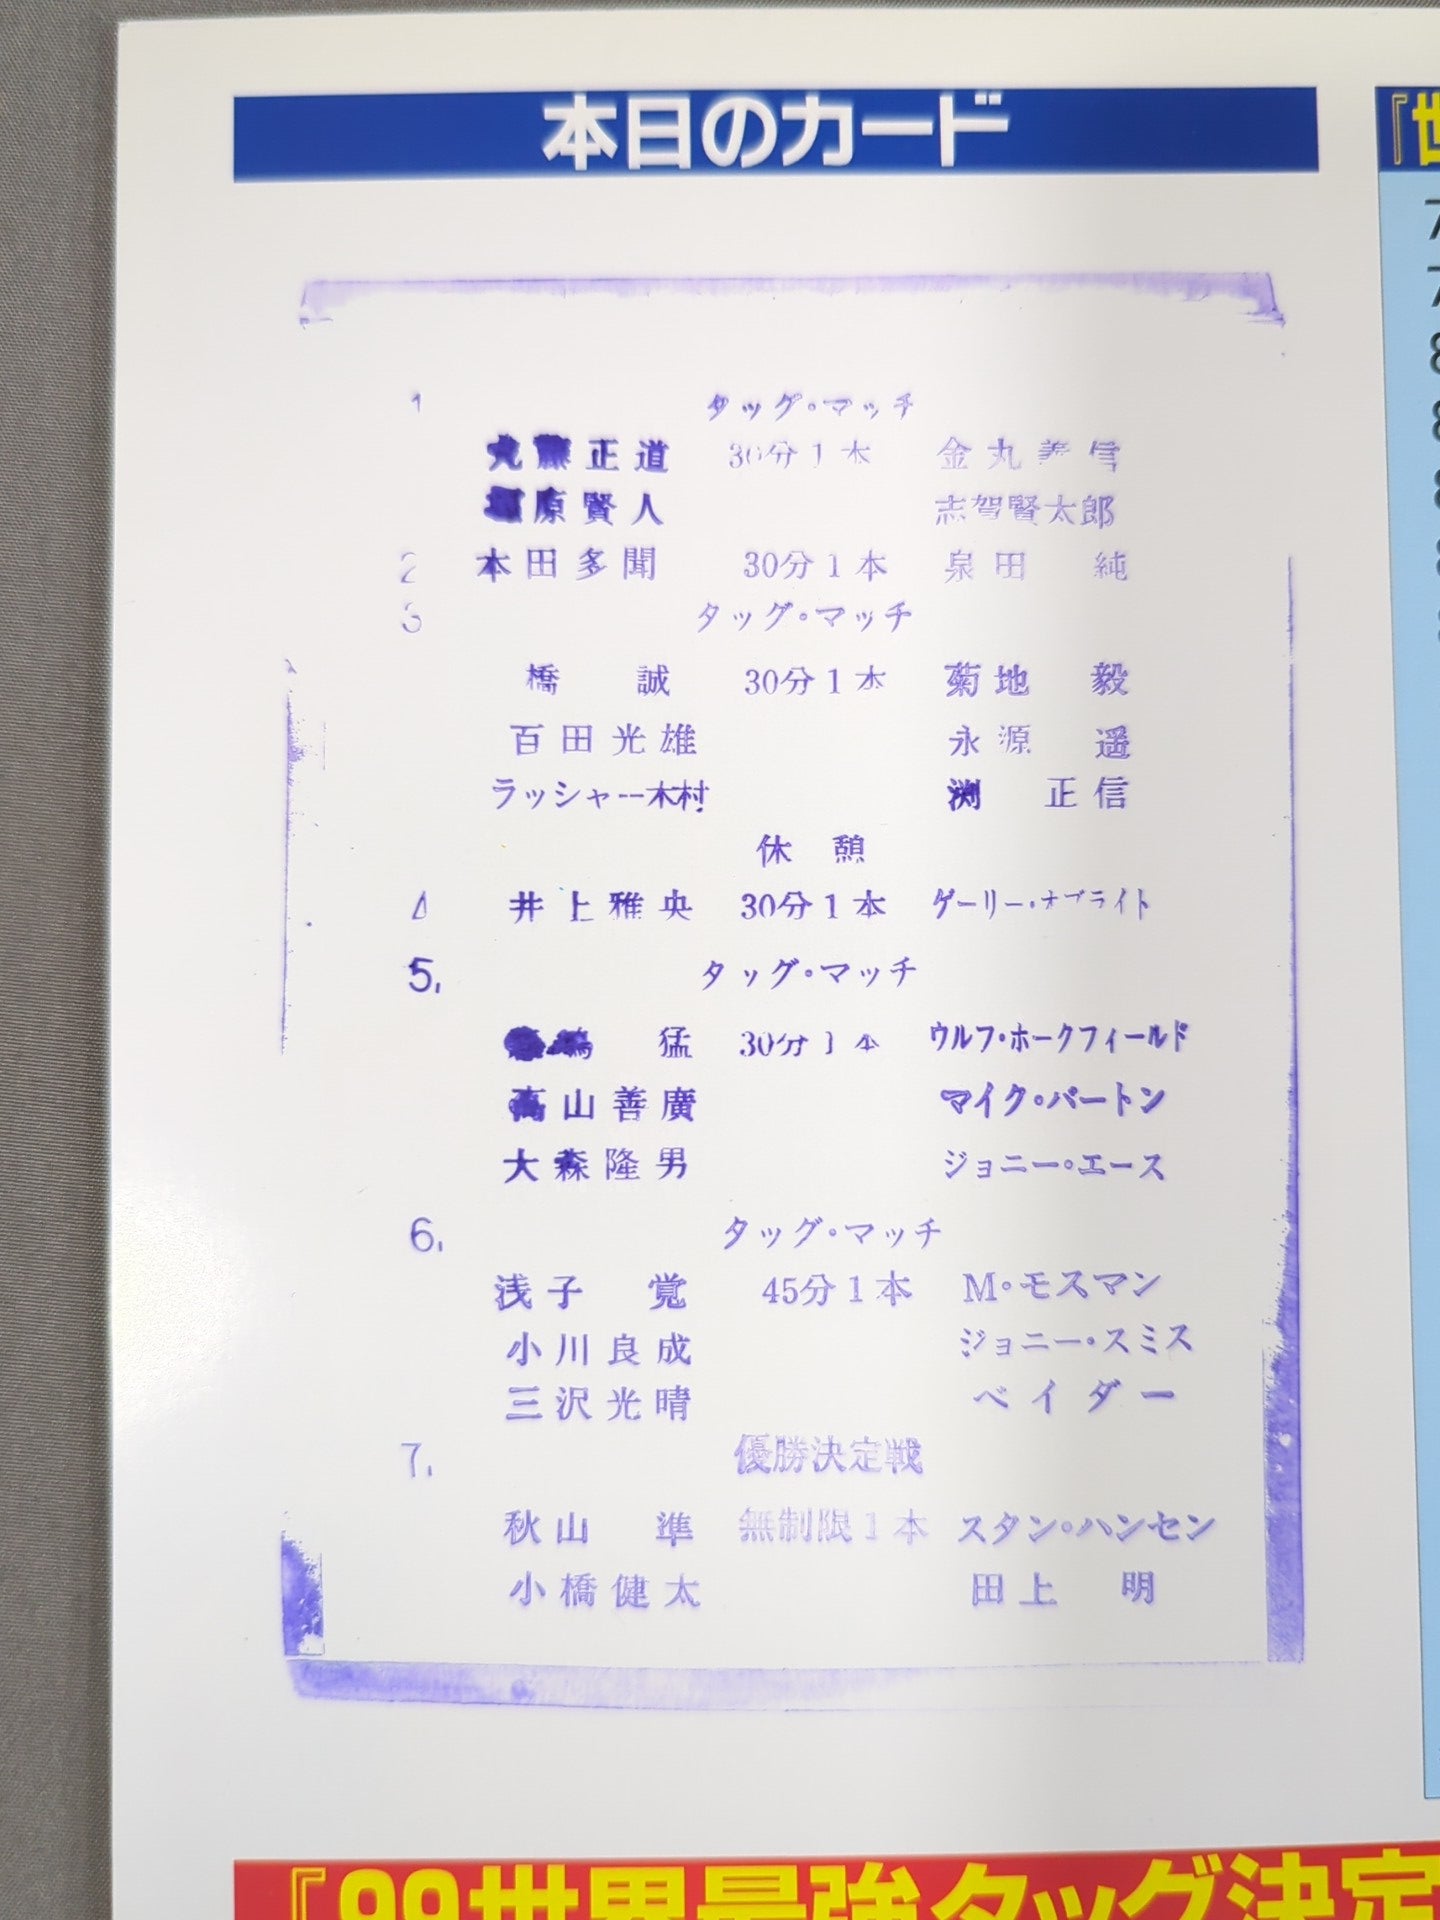 本日のカード
『世
1 タッグ・マッチ
丸藤正道 30分1本 金丸義信
原賢人 志賀賢太郎
2 本田多聞 30分1本 泉田 純
3 タッグ・マッチ
橋 誠 30分1本 菊地 毅
百田光雄 永源 遥
ラッシャー木村 渕 正信
休 憩
4 井上雅央 30分1本 ゲーリー・オブライト
5. タッグ・マッチ
猛 30分1本 ウルフ・ホークフィールド
高山善廣 マイク・バートン
大森隆男 ジョニー・エース
6. タッグ・マッチ
浅子 覚 45分1本 M・モスマン
小川良成 ジョニー・スミス
三沢光晴 ベイダー
7. 優勝決定戦
秋山 準 無制限1本 スタン・ハンセン
小橋健太 田上 明
『'99世界最強タッグ決定